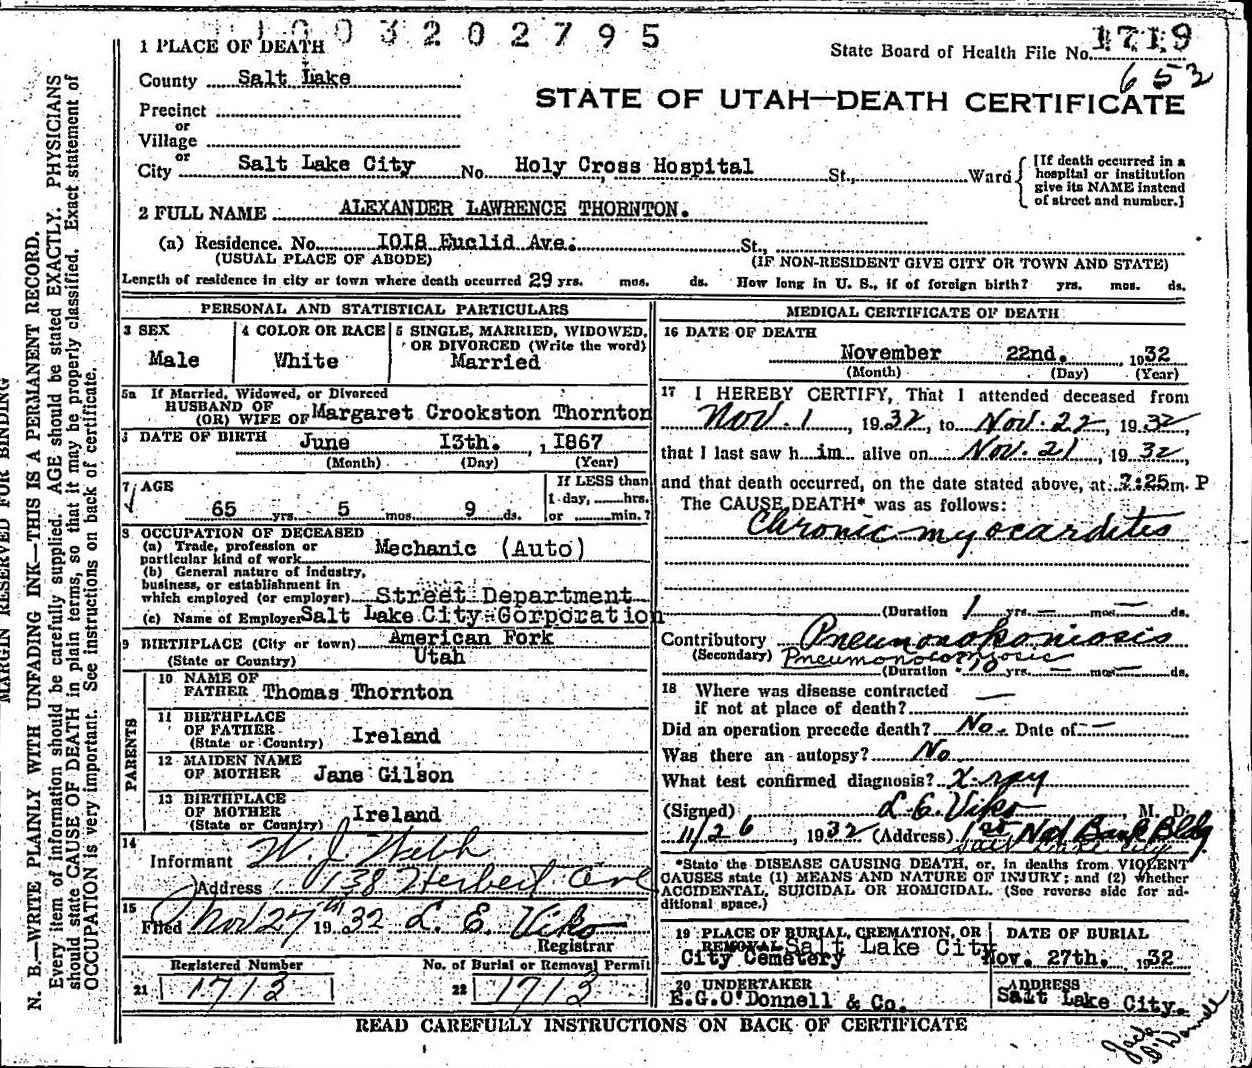 1003202795
1 PLACE OF DEATH
State Board of Health File No. 1719
653
County Salt Lake
STATE OF UTAH—DEATH CERTIFICATE
Precinct
or
Village
or
City Salt Lake City No. Holy Cross Hospital St., Ward
[If death occurred in a hospital or institution give its NAME instead of street and number.]
2 FULL NAME ALEXANDER LAWRENCE THORNTON.
(a) Residence. No. 1018 Euclid Ave. St.,
(USUAL PLACE OF ABODE) (IF NON-RESIDENT GIVE CITY OR TOWN AND STATE)
Length of residence in city or town where death occurred 29 yrs. mos. ds. How long in U. S., if of foreign birth? yrs. mos. ds.
PERSONAL AND STATISTICAL PARTICULARS
3 SEX Male
4 COLOR OR RACE White
5 SINGLE, MARRIED, WIDOWED, OR DIVORCED (Write the word) Married
5a If Married, Widowed, or Divorced
HUSBAND OF
(OR) WIFE OF Margaret Crookston Thornton
DATE OF BIRTH June 13th. , 1867
(Month) (Day) (Year)
7 AGE
65 yrs. 5 mos. 9 ds.
If LESS than 1 day, hrs. or min.?
8 OCCUPATION OF DECEASED
(a) Trade, profession or particular kind of work Mechanic (Auto)
(b) General nature of industry, business, or establishment in which employed (or employer) Street Department
(c) Name of Employer Salt Lake City Corporation
9 BIRTHPLACE (City or town) American Fork
(State or Country) Utah
PARENTS
10 NAME OF FATHER Thomas Thornton
11 BIRTHPLACE OF FATHER (State or Country) Ireland
12 MAIDEN NAME OF MOTHER Jane Gilson
13 BIRTHPLACE OF MOTHER (State or Country) Ireland
14
Informant W. J. Webb
Address 138 Herbert Ave
15
Filed Nov 27th 1932 L. E. Viko
Registrar
Registered Number
21 1713
No. of Burial or Removal Permit
22 1713
MEDICAL CERTIFICATE OF DEATH
16 DATE OF DEATH
November 22nd. , 1932
(Month) (Day) (Year)
17 I HEREBY CERTIFY, That I attended deceased from
Nov. 1, 1932, to Nov. 22, 1932
that I last saw him alive on Nov. 21, 1932,
and that death occurred, on the date stated above, at 7:25 m. P
The CAUSE DEATH* was as follows:
Chronic myocarditis
(Duration 1 yrs. — mos. — ds.
Contributory Pneumonokoniosis
(Secondary) Pneumonoconiosis
(Duration 10 yrs. — mos. — ds.
18 Where was disease contracted
if not at place of death? —
Did an operation precede death? No. Date of —
Was there an autopsy? No
What test confirmed diagnosis? X-ray
(Signed) L. E. Viko M. D.
11/26, 1932 (Address) 1st Nat Bank Bldg
Salt Lake City
*State the DISEASE CAUSING DEATH, or, in deaths from VIOLENT
CAUSES state (1) MEANS AND NATURE OF INJURY; and (2) whether
ACCIDENTAL, SUICIDAL OR HOMICIDAL. (See reverse side for ad-
ditional space.)
19 PLACE OF BURIAL, CREMATION, OR REMOVAL Salt Lake City
City Cemetery
DATE OF BURIAL
Nov. 27th. 1932
20 UNDERTAKER
E.G.O'Donnell & Co.
ADDRESS
Salt Lake City.
READ CAREFULLY INSTRUCTIONS ON BACK OF CERTIFICATE
Jack O'Donnell
MARGIN RESERVED FOR BINDING
N. B.—WRITE PLAINLY WTH UNFADING INK—THIS IS A PERMANENT RECORD.
Every item of information should be carefully supplied. AGE should be stated EXACTLY. PHYSICIANS
should state CAUSE OF DEATH in plain terms, so that it may be properly classified. Exact statement of
OCCUPATION is very important. See instructions on back of certificate.